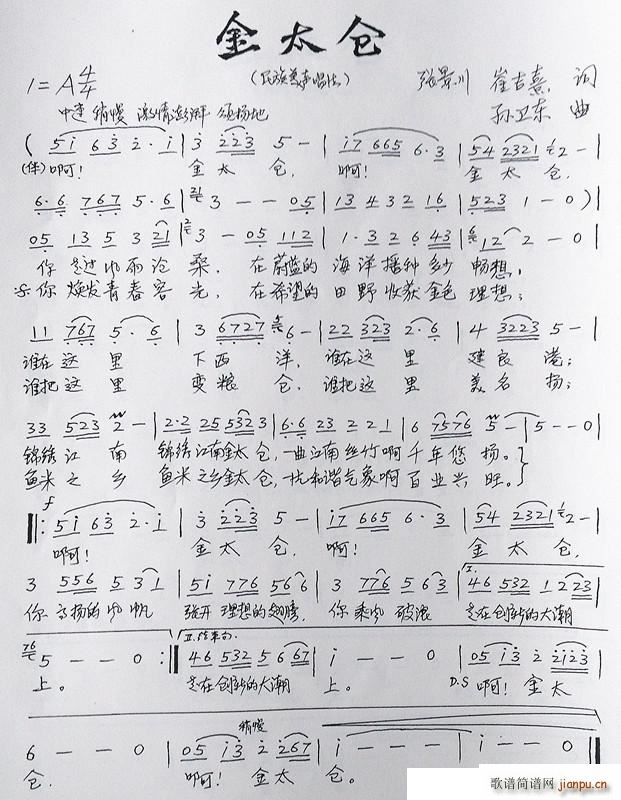 金太仓
(民族美声唱法)
1=A 4/4
张景川 崔吉熹 词
孙卫东 曲
中速 稍慢 激情澎湃 颂扬地
( 5i 6 3 2·i | 3 223 5 - | i7 665 6·3 | 54 2321 2 - |
(伴)啊! 金太仓, 啊! 金太仓,
6·6 767 5·6 | 3 - - 05 | 13 4 3 2 16 | 523 1 - 0 )
05 13 5 3 21 | 3 - 05 112 | 1·3 2 6 43 | 12 2 - 0 |
你走过风雨沧桑, 在蔚蓝的海洋播种多少畅想,
你焕发青春容光, 在希望的田野收获金色理想;
11 767 5·6 | 3 6727 6 - | 22 323 2·6 | 4 3223 5 - |
谁在这里下西洋, 谁在这里建良港;
谁把这里变粮仓, 谁把这里美名扬;
33 523 2 - | 2·2 25 532 3 | 6·6 23 2 2 1 | 6 7576 5 - | 5 - - 0 |
锦绣江南 锦绣江南金太仓, 一曲江南丝竹啊千年悠扬。
鱼米之乡 鱼米之乡金太仓, 一抗和谐气象啊百业兴旺。
f
5i 6 3 2·i | 3 223 5 - | i7 665 6·3 | 54 2321 2 - |
啊! 金太仓, 啊! 金太仓,
I.
3 556 5 31 | 5i 776 56 6 | 3 776 5 6 3 | 46 532 1 223 |
你高扬的风帆 张开理想的翅膀, 你乘风破浪 走在创新的大潮
II. 结束句
5 - - 0 :| 46 532 5 6 67 | i - - 0 | 05 i3 2 2123 |
上。 走在创新的大潮上。 D.S 啊! 金太
稍慢
6 - - 0 | 05 i3 2 267 | i - - - | i - - 0 |
仓, 啊! 金太仓。
歌谱简谱网
jianpu.cn